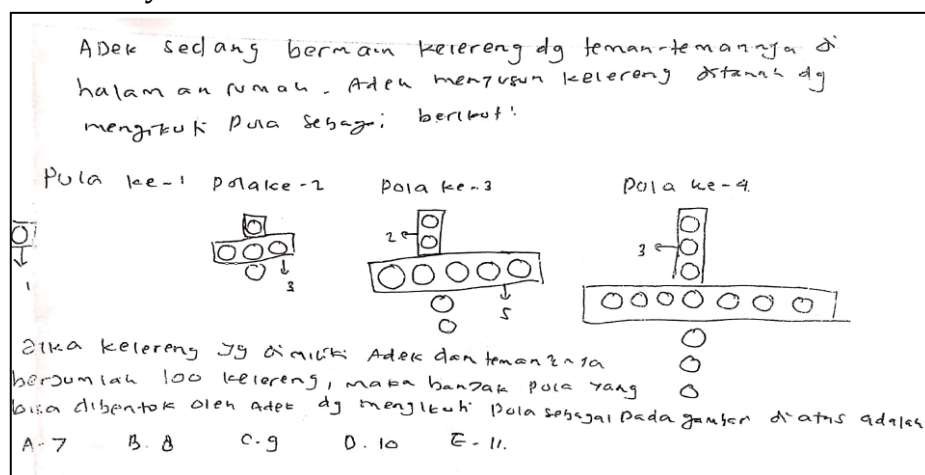 Adek sedang bermain kelereng dg teman-temannya di
halaman rumah. Adek menyusun kelereng ditanah dg
mengikuti pola sebagai berikut:
Pola ke-1 Pola ke-2 Pola ke-3 Pola ke-4
1
3
2
5
3
Jika kelereng yg dimiliki Adek dan teman2nya
berjumlah 100 kelereng, maka banyak pola yang
bisa dibentok oleh Adek dg mengikuti pola sebagai pada gambar diatas adalah
A. 7 B. 8 C. 9 D. 10 E. 11.